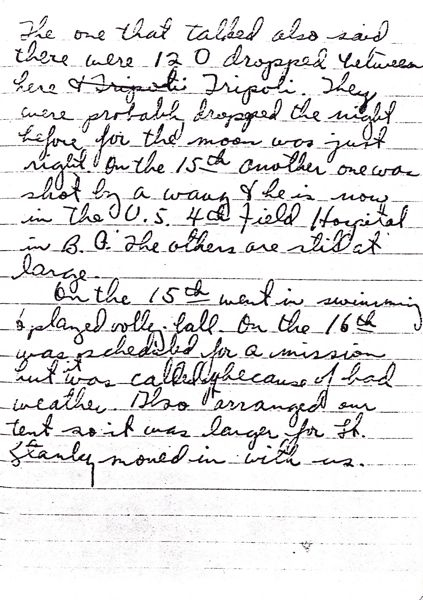 The one that talked also said
there were 120 dropped between
here & Tripoli Tripoli. They
were probably dropped the night
before for the moon was just
right. On the 15th another one was
shot by a waug & he is now
in the U.S. 4th Field Hospital
in B. A. The others are still at
large.
On the 15th went in swimming
& played volley-ball. On the 16th
was scheduled for a mission
but it was called off because of bad
weather. Also arranged our
tent so it was larger for Lt.
Stanly moved in with us.